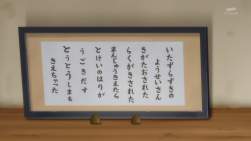 いたずらずきの
ようせいさん
きがたおされた
らくがきされた
まんじゅうきえたら
とけいのはりが
うごきだす
とうとうしまも
きえちゃった